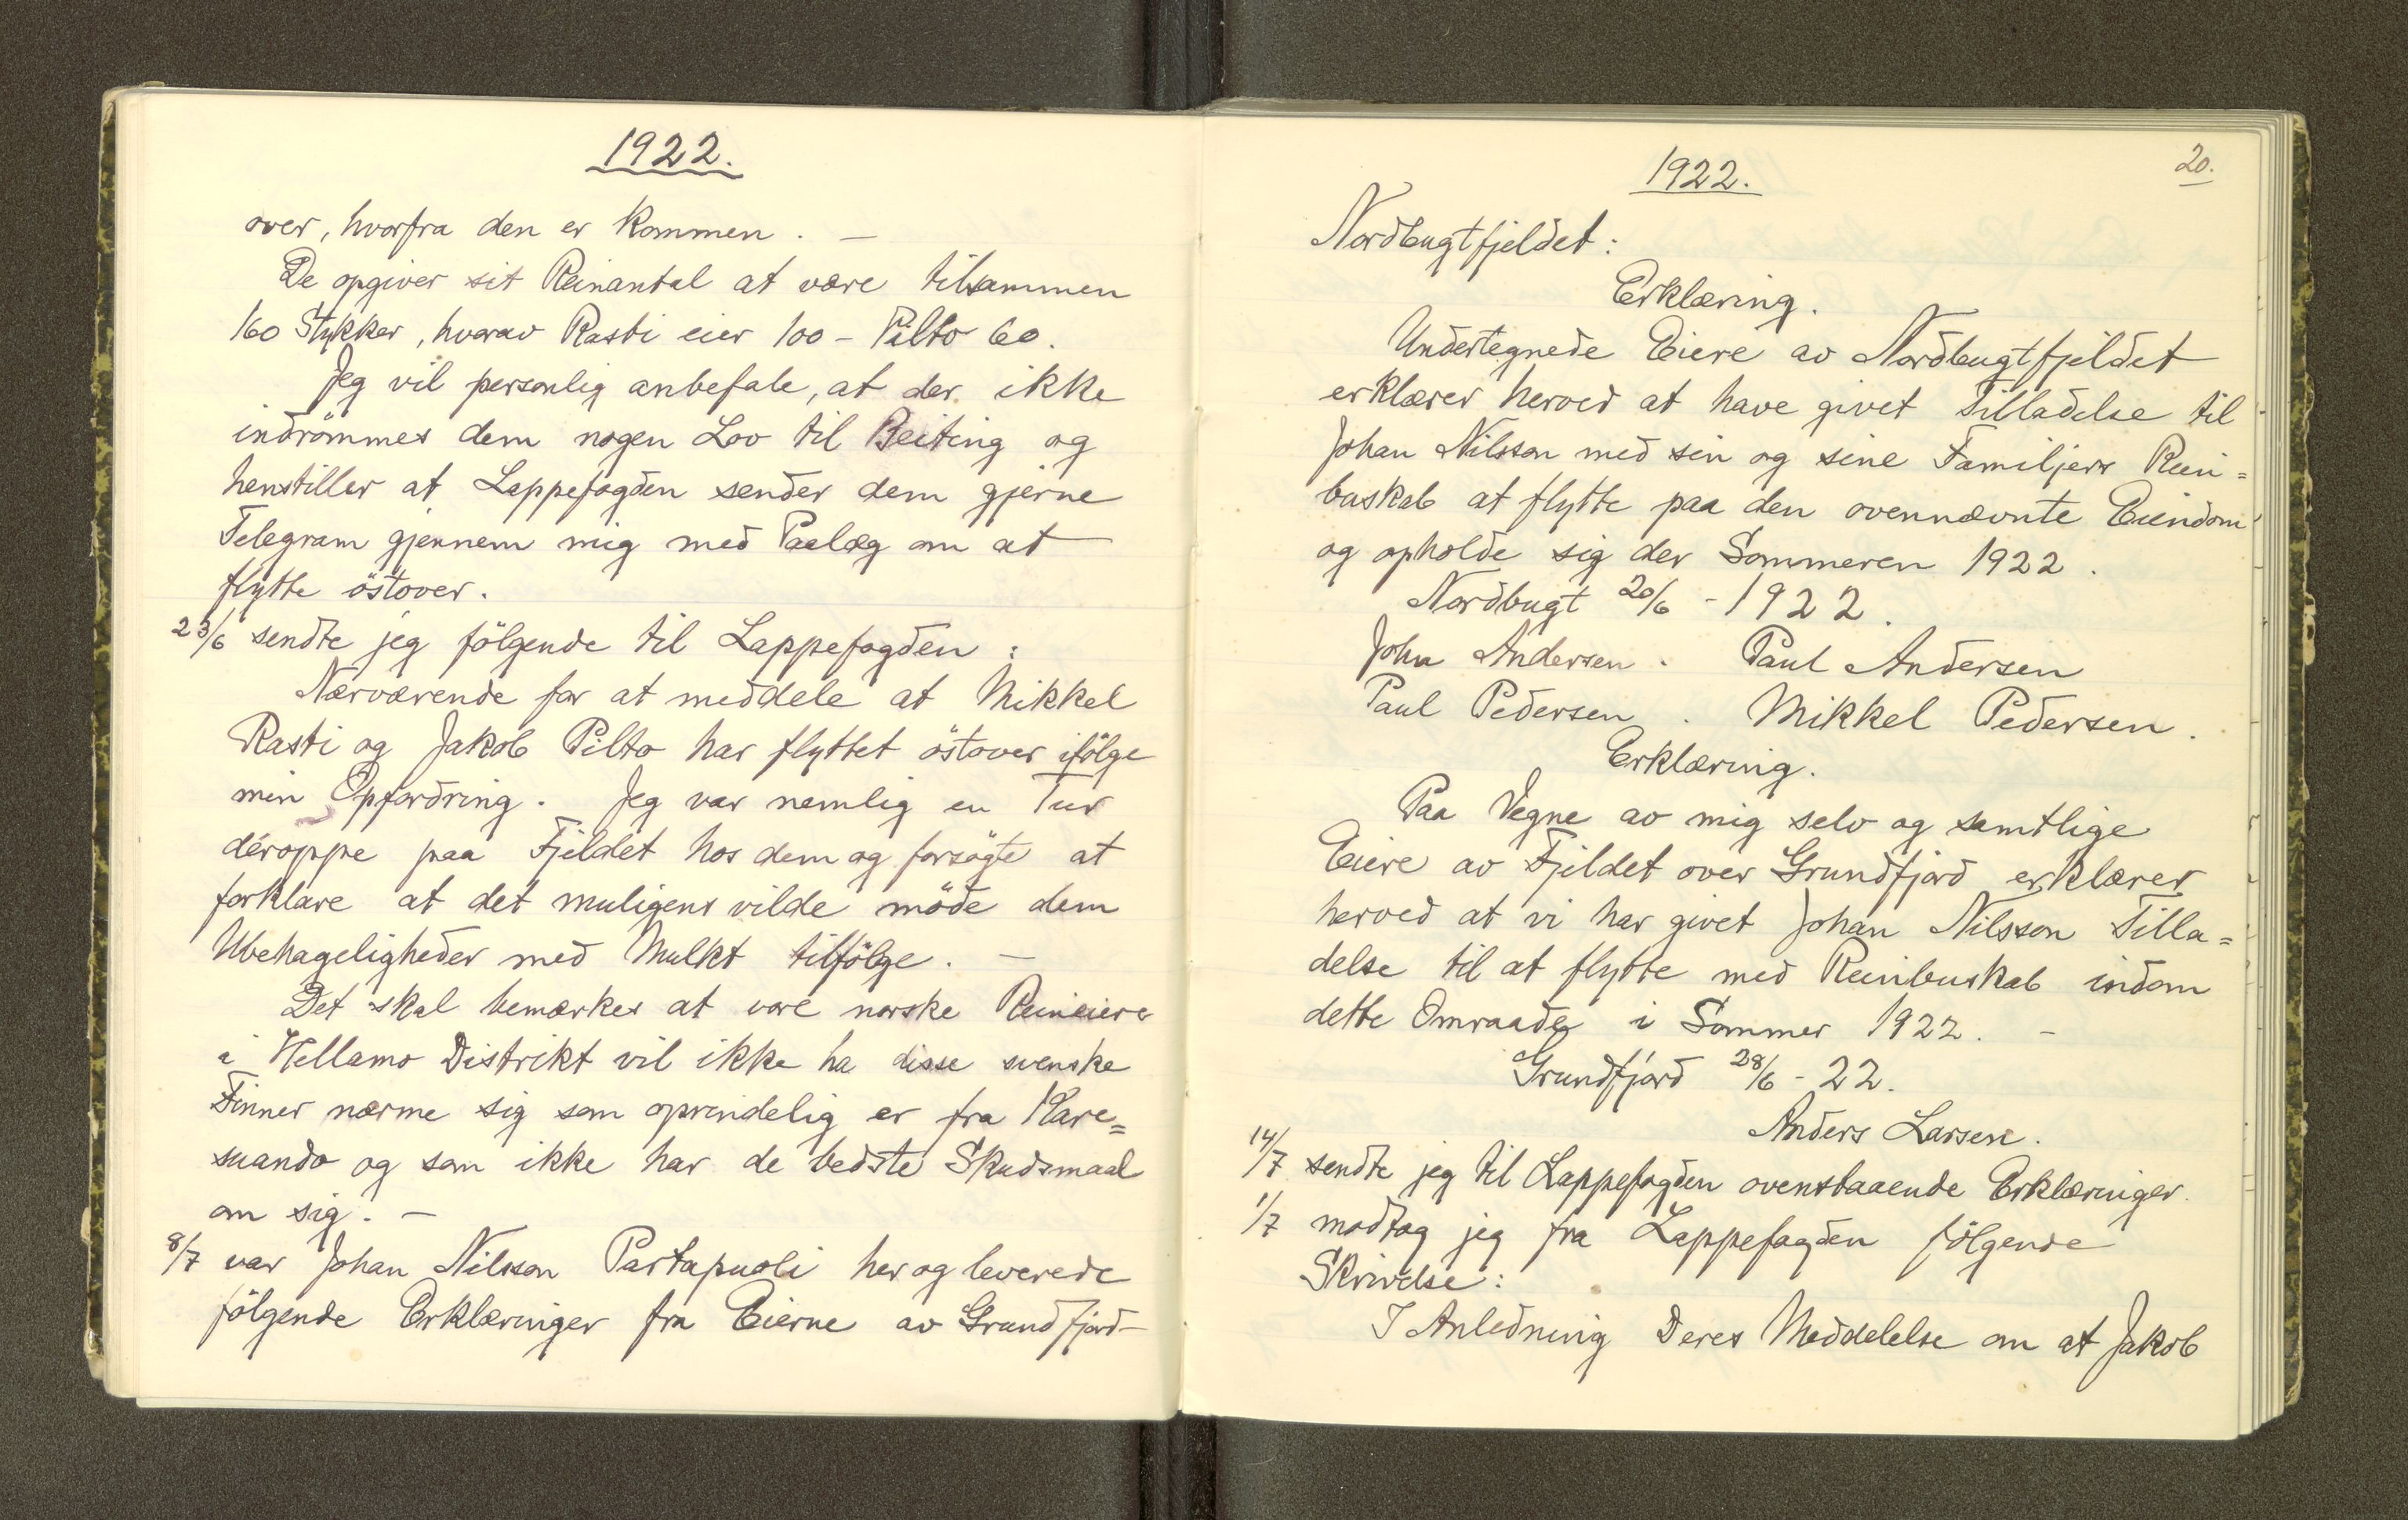 1922.
over, hvorfra den er kommen. —
De opgiver sit Reinantal at være tilsammen
160 Stykker, hvorav Rasti eier 100 - Pilto 60.
Jeg vil personlig anbefale, at der ikke
indrömmes dem nogen Lov til Beiting og
henstiller at Lappefogden sender dem gjerne
Telegram gjennem mig med Paalæg om at
flytte östover.
23/6 sendte jeg fölgende til Lappefogden:
Nærværende for at meddele at Mikkel
Rasti og Jakob Pilto har flyttet östover ifölge
min Opfordring. Jeg var nemlig en Tur
deroppe paa Fjeldet hos dem og forsögte at
forklare at det muligens vilde möde dem
Ubehageligheder med Mulkt tilfölge. —
Det skal bemærkes at vore norske Reineiere
i Hellamo Distrikt vil ikke ha disse svenske
Finner nærme sig som oprindelig er fra Kare=
suando og som ikke har de bedste Skudsmaal
om sig. —
8/7 var Johan Nilsson Partapuoli her og leverede
fölgende Erklæringer fra Eierne av Grundfjord-
1922.
20.
Nordbugtfjeldet:
Erklæring.
Undertegnede Eiere av Nordbugtfjeldet
erklærer herved at have givet Tilladelse til
Johan Nilsson med sin og sine Familjers Rein=
buskab at flytte paa den ovennævnte Eiendom
og opholde sig der Sommeren 1922.
Nordbugt 20/6 - 1922.
John Andersen. Paul Andersen
Paul Pedersen. Mikkel Pedersen.
Erklæring.
Paa Vegne av mig selv og samtlige
Eiere av Fjeldet over Grundfjord erklærer
herved at vi har givet Johan Nilsson Tilla=
delse til at flytte med Reinbuskab indom
dette Omraade i Sommer 1922. —
Grundfjord 28/6 - 22.
Anders Larsen.
14/7 sendte jeg til Lappefogden ovenstaaende Erklæringer.
1/7 modtog jeg fra Lappefogden fölgende
Skrivelse:
I Anledning Deres Meddelelse om at Jakob